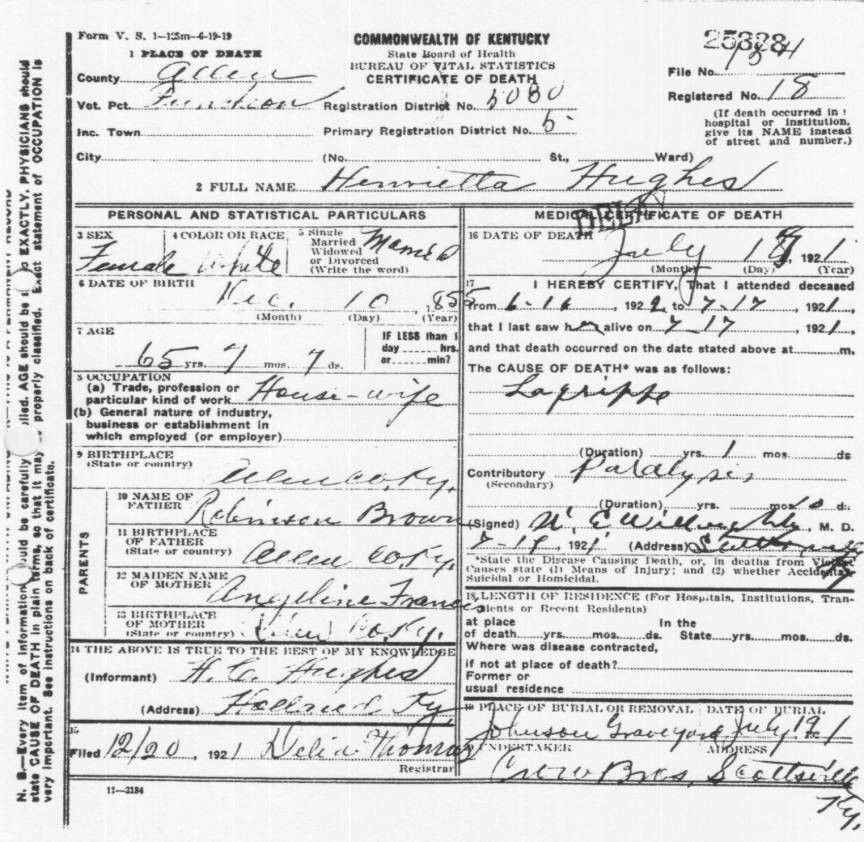 Form V. S. 1—125m—6-19-19
COMMONWEALTH OF KENTUCKY
State Board of Health
BUREAU OF VITAL STATISTICS
CERTIFICATE OF DEATH
25328
File No. 1524
Registered No. 18
(If death occurred in
hospital or institution,
give its NAME instead
of street and number.)
1 PLACE OF DEATH
County Allen
Vot. Pct. Junction
Registration District No. 5080
Inc. Town
Primary Registration District No. 5
City (No. St., Ward)
2 FULL NAME Henrietta Hughes
DELAY
PERSONAL AND STATISTICAL PARTICULARS
3 SEX
Female
4 COLOR OR RACE
White
5 Single
Married
Widowed
or Divorced
(Write the word)
Married
6 DATE OF BIRTH
Dec. 10, 1855
(Month) (Day) (Year)
7 AGE
65 yrs. 7 mos. 7 ds.
IF LESS than 1
day hrs.
or min?
8 OCCUPATION
(a) Trade, profession or
particular kind of work House-wife
(b) General nature of industry,
business or establishment in
which employed (or employer)
9 BIRTHPLACE
(State or country)
Allen Co. Ky.
PARENTS
10 NAME OF
FATHER
Robinson Brown
11 BIRTHPLACE
OF FATHER
(State or country)
Allen Co. Ky.
12 MAIDEN NAME
OF MOTHER
Angeline Francis
13 BIRTHPLACE
OF MOTHER
(State or country)
Allen Co. Ky.
14 THE ABOVE IS TRUE TO THE BEST OF MY KNOWLEDGE
(Informant) H. C. Hughes
(Address) Holland Ky
15
Filed 12/20, 1921 Delia Thomas
Registrar
11—3184
MEDICAL CERTIFICATE OF DEATH
16 DATE OF DEATH
July 18, 1921
(Month) (Day) (Year)
17 I HEREBY CERTIFY, That I attended deceased
from 6-16, 1922 to 7-17, 1921,
that I last saw her alive on 7-17, 1921,
and that death occurred on the date stated above at m.
The CAUSE OF DEATH* was as follows:
Lagrippe
(Duration) yrs. 1 mos. ds
Contributory Paralysis
(Secondary)
(Duration) yrs. mos. d:
(Signed) M. D.
1921 (Address)
*State the Disease Causing Death, or, in deaths from Violent
Causes state (1) Means of Injury; and (2) whether Accidental
Suicidal or Homicidal.
18 LENGTH OF RESIDENCE (For Hospitals, Institutions, Tran-
sients or Recent Residents)
at place In the
of death yrs. mos. ds. State yrs. mos. ds.
Where was disease contracted,
if not at place of death?
Former or
usual residence
19 PLACE OF BURIAL OR REMOVAL DATE OF BURIAL
Johnson Graveyard July 19 1
UNDERTAKER ADDRESS
Bros, Scottsville
Ky.
N. B.—Every item of information should be carefully supplied. AGE should be EXACTLY. PHYSICIANS should
state CAUSE OF DEATH in plain terms, so that it may properly classified. Exact statement of OCCUPATION is
very important. See instructions on back of certificate.